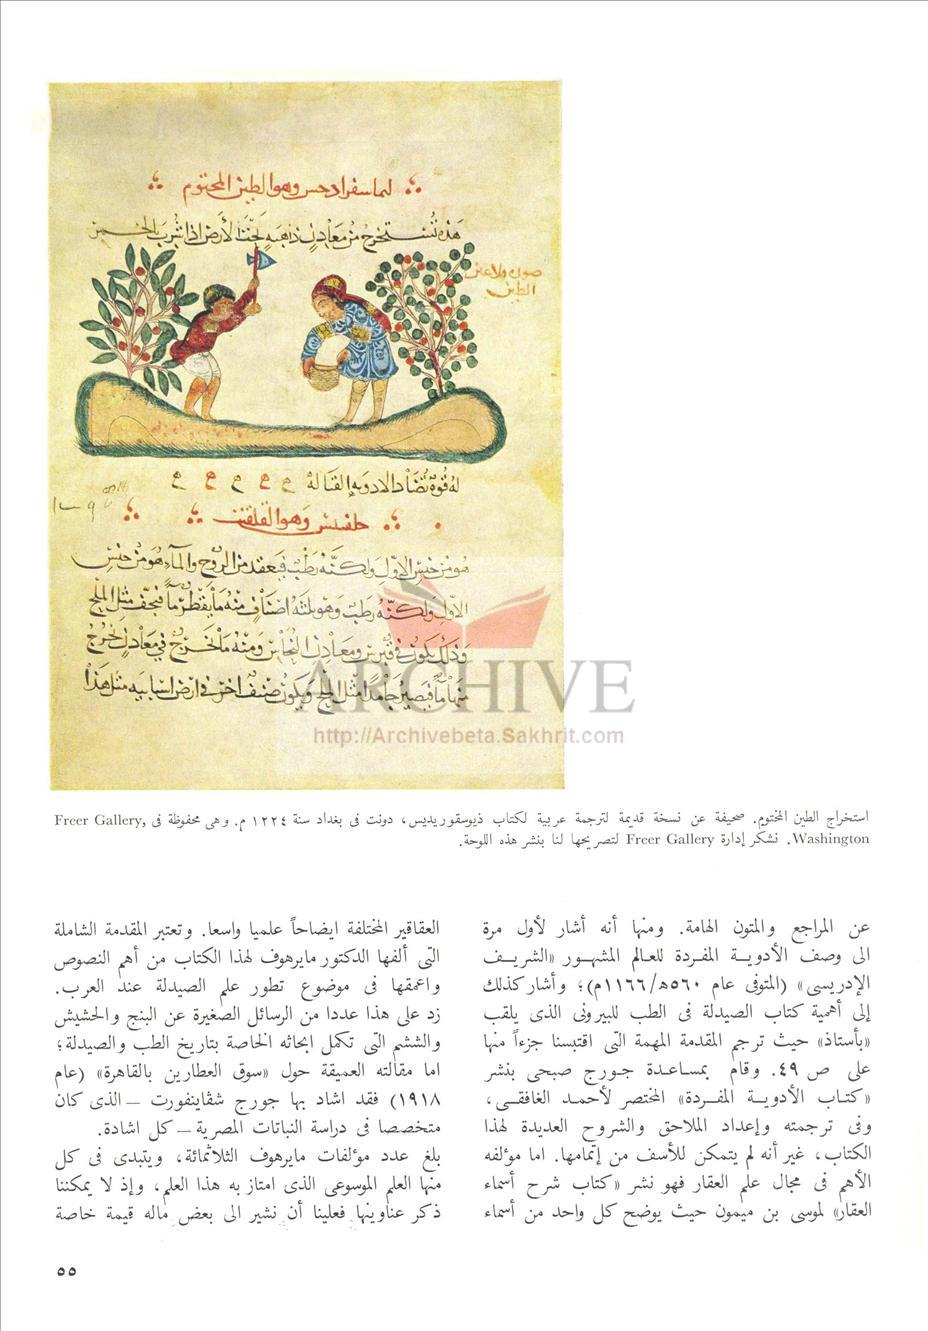 لمباسفراد حس وهو الطين المختوم
هذه تستخرج من معادن ذاهبة تحت الأرض اذا شرب بالخمر
صورة ولاعبى
الطين
له قوة تضاد الادوية القتالة
حلفيتس وهو القلقنت
هو من جنس الاول ولكنه رطب فيعقد من الروح والماء هو من جنس
الاول ولكنه رطب وهو ثلثة اصناف منه ما يقطر ماً فيجف مثل الملح
وذلك يكون في قبرس ومعادن النحاس ومنه ما يخرج في معادن خروج
منها ماً فيصير جامداً مثل الملح ويكون صنف اخر في ارض اسبانيه مثل هذا
ARCHIVE
http://Archivebeta.Sakhrit.com
استخراج الطين المختوم. صحيفة عن نسخة قديمة لترجمة عربية لكتاب ذيوسقوريديس، دونت فى بغداد سنة ١٢٢٤ م. وهى محفوظة فى Freer Gallery,
Washington. نشكر إدارة Freer Gallery لتصريحها لنا بنشر هذه اللوحة.
عن المراجع والمتون الهامة. ومنها أنه أشار لأول مرة
الى وصف الأدويــة المفـردة للعـالم المشهـور «الشريـف
الإدريسى» (المتوفى عام ٥٦٠ه/١١٦٦م)؛ وأشار كذلك
إلى أهمية كتاب الصيدلة فى الطب للبيرونى الذى يلقب
«بأستاذ» حيث ترجم المقدمة المهمة التى اقتبسنا جزءاً منها
على ص ٤٩. وقام بمساعدة جورج صبحى بنشر
«كتـاب الأدويــة المفـردة» المختصر لأحمـد الغافقـى،
وفى ترجمته وإعداد الملاحق والشروح العديدة لهذا
الكتاب، غير أنه لم يتمكن للأسف من إتمامها. اما مؤلفه
الأهم فى مجال علم العقار فهو نشر «كتاب شرح أسماء
العقار» لموسى بن ميمون حيث يوضح كل واحد من أسماء
العقاقير المختلفة ايضاحاً علميا واسعا. وتعتبر المقدمة الشاملة
التى ألفها الدكتور مايرهوف لهذا الكتاب من أهم النصوص
واعمقها فى موضوع تطور علم الصيدلة عند العرب.
زد على هذا عددا من الرسائل الصغيرة عن البنج والحشيش
والششم التى تكمل ابحاثه الخاصة بتاريخ الطب والصيدلة؛
اما مقالته العميقة حول «سوق العطارين بالقاهرة» (عام
١٩١٨) فقد اشاد بها جورج شڤاينفورت ــ الذى كان
متخصصا فى دراسة النباتات المصرية ــ كل اشادة.
بلغ عدد مؤلفات مايرهوف الثلاثمائة، ويتبدى فى كل
منها العلم الموسوعى الذى امتاز به هذا العلم، وإذ لا يمكننا
ذكر عناوينها فعلينا أن نشير الى بعض ماله قيمة خاصة
٥٥